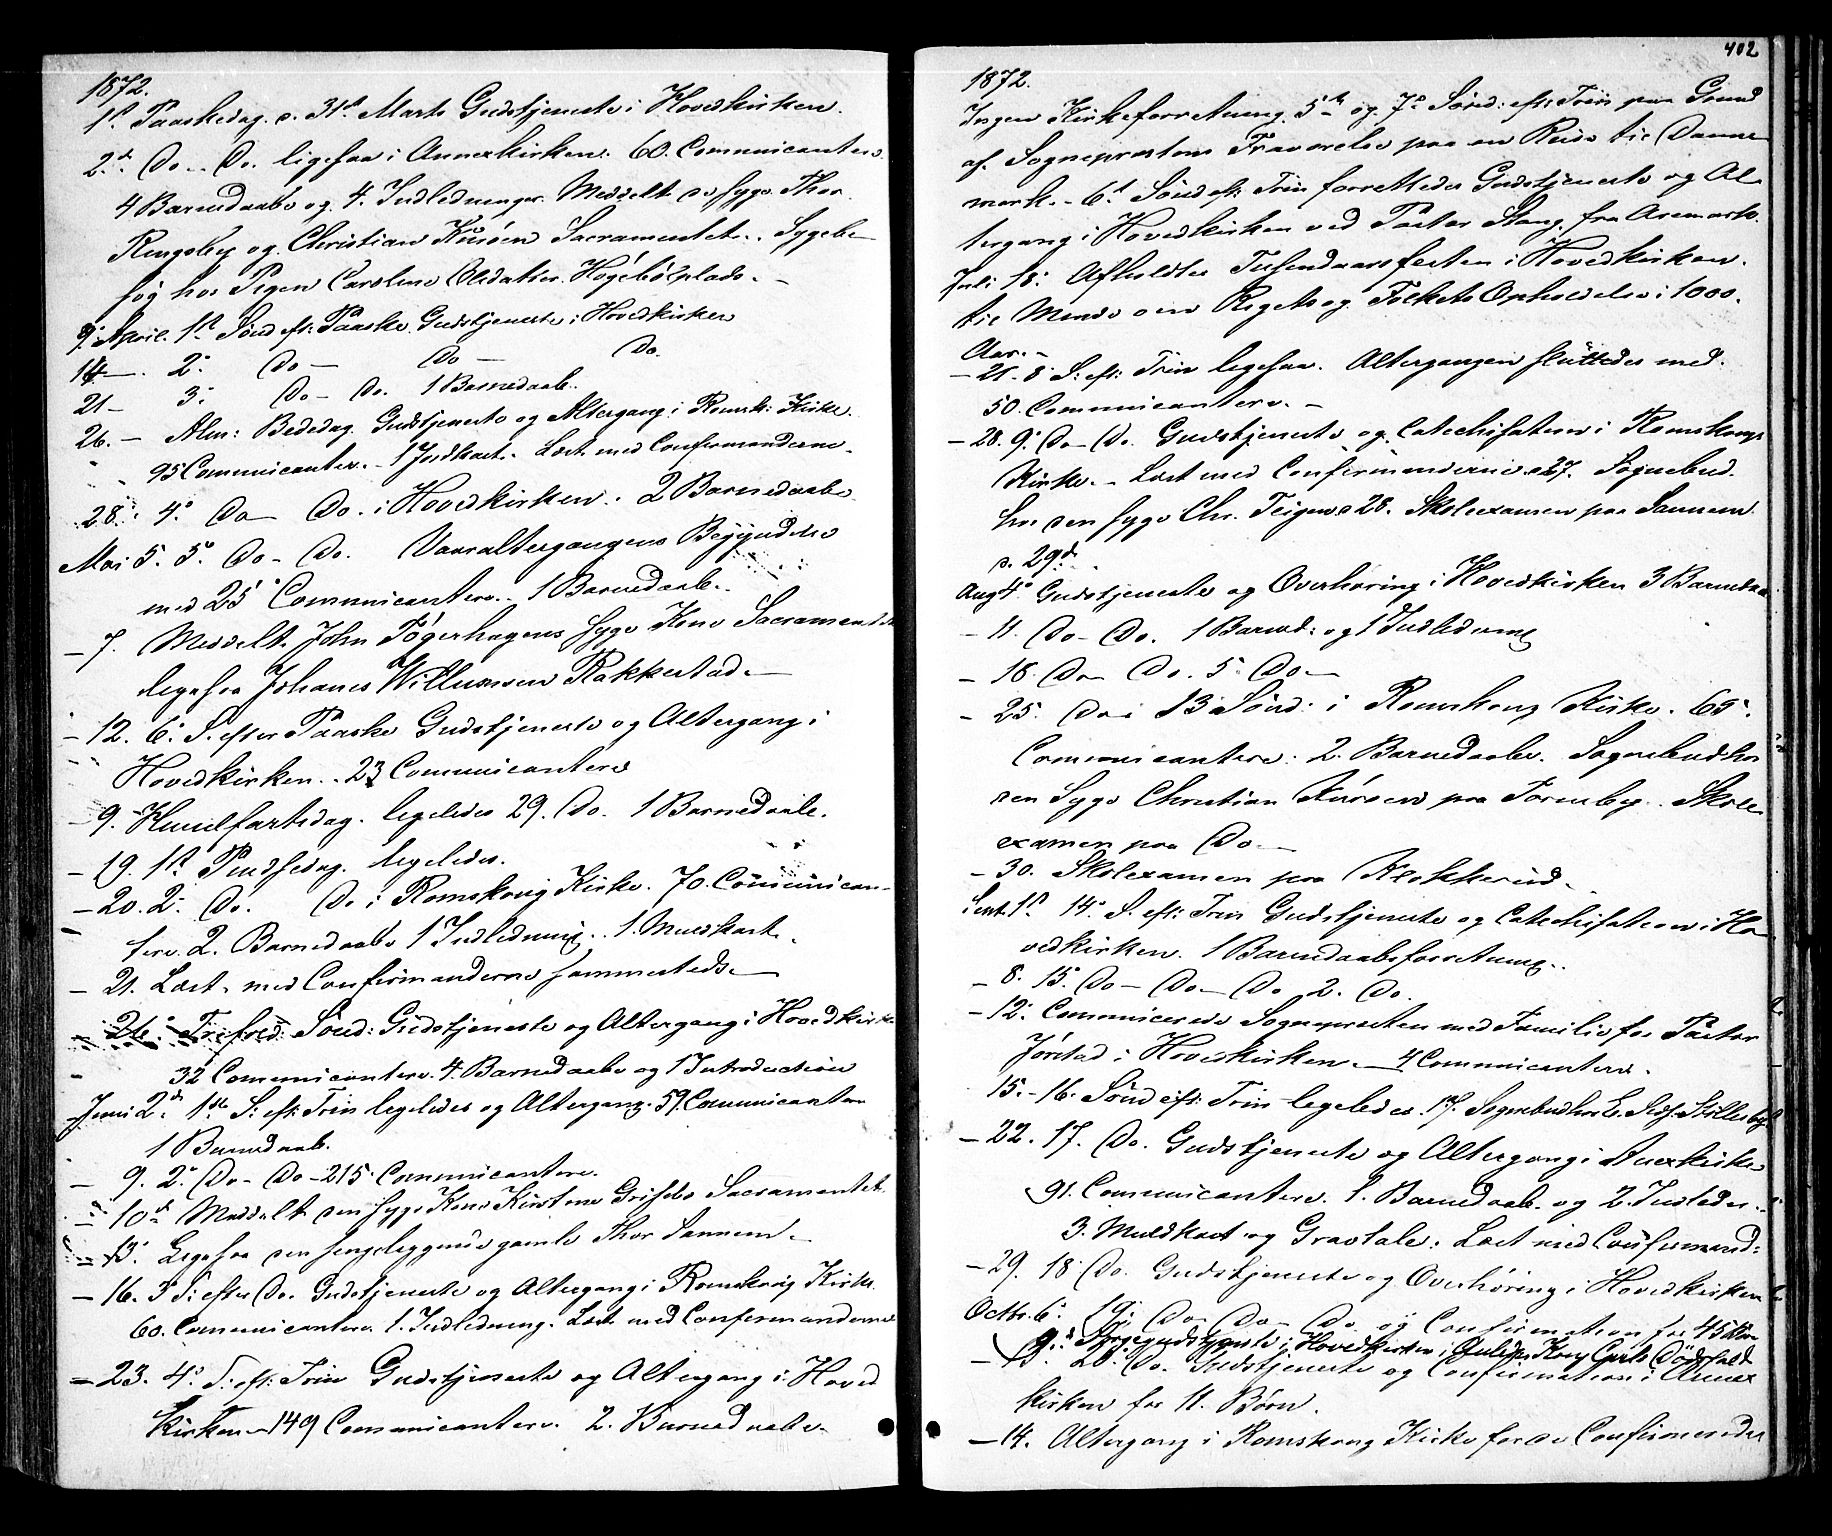 1872.
1st Paaskedag. d. 31te Marts Gudstjeneste i Hovedkirken.
2d. Do - Do. ligesaa i Annexkirken. 60. Communicantere.
4 Barnedaabe og 4. Indledninger. Meddelt de syge Thor
Rengsby og Christian Sacramentet. Sygebe-
søg hos Pigen Caroline Olsdatter Høgebølplads. -
April. 1st Sønd. eft: Paaske Gudstjeneste i Hovedkirken
14 -. 2. Do - Do - Do.
21 - 3: Do - Do. 1 Barnedaab.
26. - Alm: Bededag Gudstjeneste og Altergang i Romsk: Kirke.
95 Communicanter. - 1 Jordkast. Læst med Confirmanderne.
28. 4: Do Do. i Hovedkirken. 2 Barnedaabe
Mai 5. 5: Do - Do. Vaaraltergangens Begyndelse
med 25 Communicantere. 1 Barnedaab.
- 7. Meddelt John Tøgerhagens syge Kone Sacramentet
ligesaa Johanes Willumsen Rakkestad. -
- 12. 6: S. efter Paaske Gudstjeneste og Altergang i
Hovedkirken. . 23 Communicantere
- 9. Himelfartsdag. ligeledes 29. Do. 1 Barnedaab.
- 19. 1st Pindsedag. ligeledes.
- 20. 2: Do. Do i Romskoug Kirke. 70. Communican-
tere. 2. Barnedaabe 1 Indledning. 1. Muldkast.
- 21. Læst med Confirmanderne sammesteds. -
- 26. Trefold: Sønd: Gudstjeneste og Altergang i Hovedkirk
32 Communicantere. 4. Barnedaabe og 1 Introduction
Juni 2d. 1ste S: eft: Trin ligeledes og Altergang. 59. Communicanter
1 Barnedaab.
- 9. 2: Do - Do - 215 Communicantere.
- 10de Meddelt den syge Kone Kirstine Grisebo Sacramentet.
- 13. Ligesaa den sengeliggende gamle Thor Sannem. -
- 16. 3 S: efter Do. Gudstjeneste og Altergang i Romskoug Kirke.
60. Communicantere. 1. Indledning. Læst med Confirmanderne
- 23. 4: S. eft: Trin Gudstjeneste og Altergang i Hoved
kirken - 149 Communicantere. 2. Barnedaabe.
402
1872.
Ingen Kirkeforretning 5te og 7de Sønd: eft: Trin paa Grund
af Sognepræstens Fraværelse paa en Reise til Danne-
mark. - 6te Sønd eft: Trin forrettedes Gudstjeneste og Al-
tergang i Hovedkirken ved Pastor Stang fra Aremark.
Juli 18: Afholdtes Tusendaarsfesten i Hovedkirken.
til Minde om Rigets og Folkets Opholdelse i 1000.
Aar. -
- 21. 8 S: eft: Trin ligesaa. Altergangen sluttedes med.
50. Communicantere. -
- 28. 9: Do - Do. Gudstjeneste og Catechisation i Romskougs
Kirke. - Læst med Confirmanderne d 27. Sognebud.
hos den syge Chr. Teigen d 28. Skoleexamen paa Sannem.
d. 29d.
Aug 4: Gudstjeneste og Overhøring i Hovedkirken 3 Barnedaa
- 11. Do - Do. 1 Barnd: og 1 Indledning
- 18. Do Do. 5. Do -
- 25. Do i 13 Sønd: i Romskoug Kirke. 65.
Communicantere: 2. Barnedaabe. Sognebud hos
den Syge Christian paa Torenby. Skole-
examen paa Do. -
- 30. Skoleexamen paa Klokkerud.
Sept. 1st 14: S. eft: Trin Gudstjeneste og Catechisation i Ho-
vedkirken. 1 Barnedaabsforretning.
- 8. 15. Do - Do - Do 2. Do.
- 12: Communicerede Sognepræsten med Familie for Pastor
Jørstad i Hovedkirken. - 4 Communicantere.
15. - 16. Sønd eft: Trin ligeledes. 17. Sognebud hos
- 22. 17. Do. Gudstjeneste og Altergang i Anexkirke
91. Communicantere. 1. Barnedaab og 2. Indleder.
3. Muldkast og Gravtale. Læst med Confirmand:
- 29. 18: Do. Gudstjeneste og Overhøring i Hovedkirken
Octb. 6: 19: Do - Do - Do og Confirmation for 45 Børn
9: Sørgegudstjeneste i Hovedkirken i Anledn: Kong Carls Dødsfald
- 13. 20. Do. Gudstjeneste og Confirmation i Annex
kirken for 11. Børn.
- 14. Altergang i Romskoug Kirke for de Confirmerede